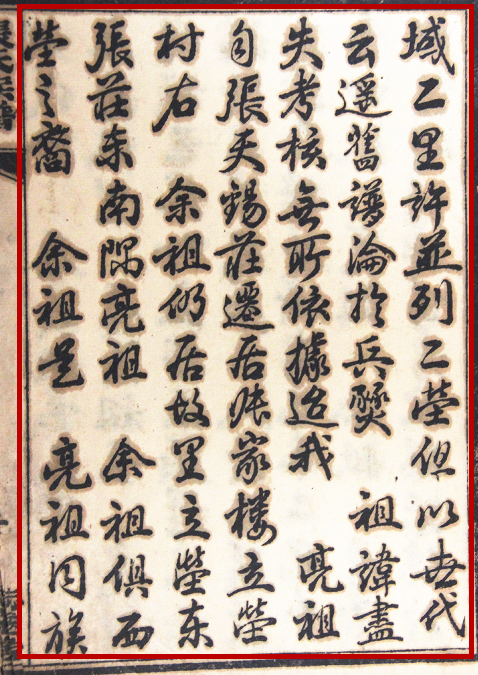 域二里許並列二塋但以世代
云遥舊譜淪於兵燹 祖諱盡
失考核無所依據迨我 亮祖
自張天錫莊遷居張家楼立塋
村右 余祖仍居故里立塋东
張莊东南隅亮祖 余祖俱西
塋之裔 余祖是 亮祖同族